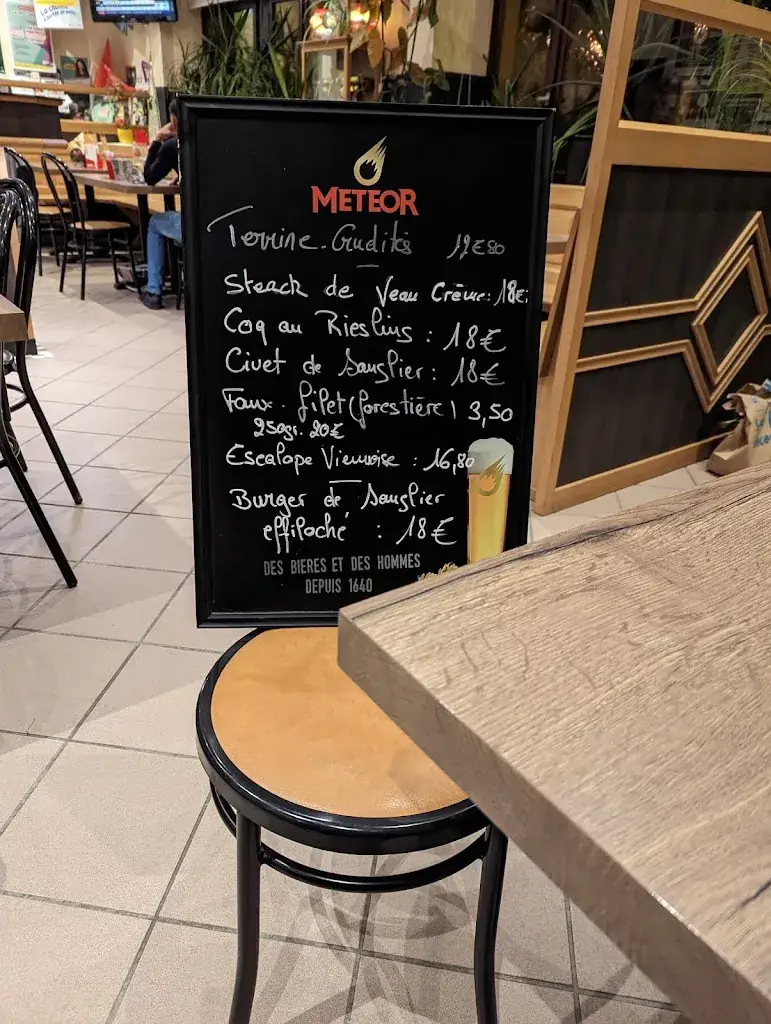 METEOR
Terrine - Crudités 12€80
Steack de Veau Crème : 18€
Coq au Riesling : 18€
Civet de Sanglier : 18€
Faux-filet (forestière) 3,50
250gr. 20€
Escalope Viennoise : 16,80
Burger de Sanglier
effiloché : 18€
DES BIERES ET DES HOMMES
DEPUIS 1640